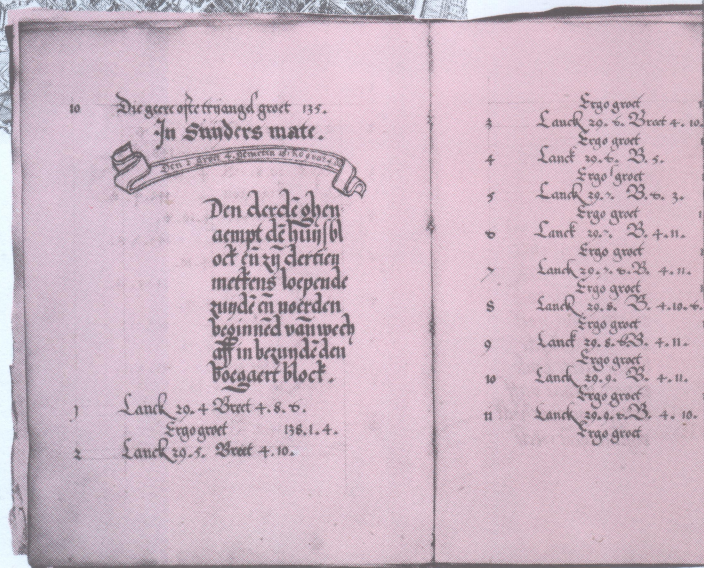 10 Die geere ofte trijangel groet 135.
In Suyders mate.
Den
Den derdē ghen
aempt dē huijsbl
ock eñ zij dertien
metkens loepende
zuydē eñ noerden
beginnēd vāwech
aff in bezundē den
boegaert block.
1 Lanck 29. 4 Breet 4. 8. 6.
Ergo groet 138. 1. 4.
2 Lanck 29. 5. Breet 4. 10.
Ergo groet
3 Lanck 29. 6. Breet 4. 10.
Ergo groet
4 Lanck 29. 6. B. 5.
Ergo groet
5 Lanck 29. 7. B. 6. 3.
Ergo groet
6 Lanck 29. 7. B. 4. 11.
Ergo groet
7 Lanck 29. 7. 6. B. 4. 11.
Ergo groet
8 Lanck 29. 8. B. 4. 10. 6.
Ergo groet
9 Lanck 29. 8. 6. B. 4. 11.
Ergo groet
10 Lanck 29. 9. B. 4. 11.
Ergo groet
11 Lanck 29. 9. 6. B. 4. 10.
Ergo groet